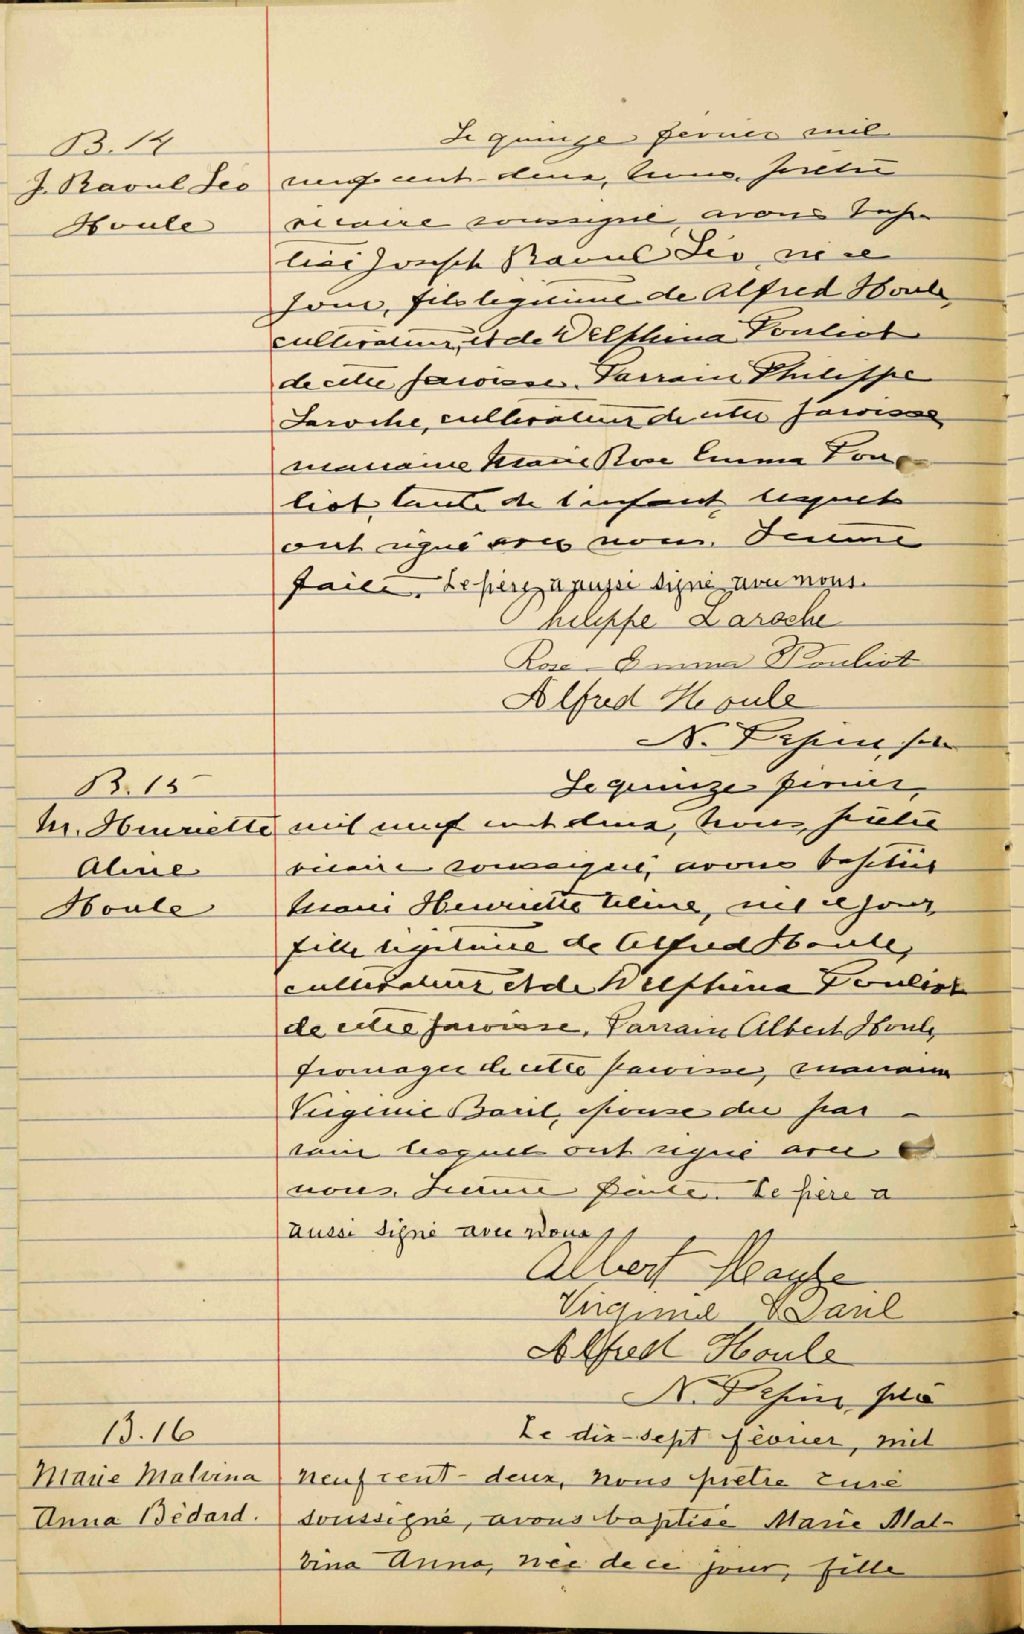 B. 14
J. Raoul Léo
Houle
Le quinze février mil
neuf cent-deux, nous, prêtre
vicaire soussigné, avons bap-
tisé Joseph Raoul Léo, né ce
jour, fils légitime de Alfred Houle,
cultivateur, et de Delphina Pouliot
de cette paroisse. Parrain Philippe
Laroche, cultivateur de cette paroisse,
marraine Marie Rose Emma Pou-
liot, tante de l'enfant, lesquels
ont signé avec nous. Lecture
faite. Le père a aussi signé avec nous.
Philippe Laroche
Rose-Emma Pouliot
Alfred Houle
N. Pepin, ptre
B. 15
M. Henriette
Aline
Houle
Le quinze février,
mil neuf cent deux, nous, prêtre
vicaire soussigné, avons baptisé
Marie Henriette Aline, née ce jour,
fille légitime de Alfred Houle,
cultivateur et de Delphina Pouliot
de cette paroisse. Parrain Albert Houle,
fromager de cette paroisse, marraine
Virginie Baril, épouse du par-
rain lesquels ont signé avec
nous. Lecture faite. Le père a
aussi signé avec nous
Albert Houle
Virginie Baril
Alfred Houle
N. Pepin, ptre
B. 16
Marie Malvina
Anna Bédard.
Le dix-sept février, mil
neuf cent-deux, nous prêtre curé
soussigné, avons baptisé Marie Mal-
vina Anna, née de ce jour, fille